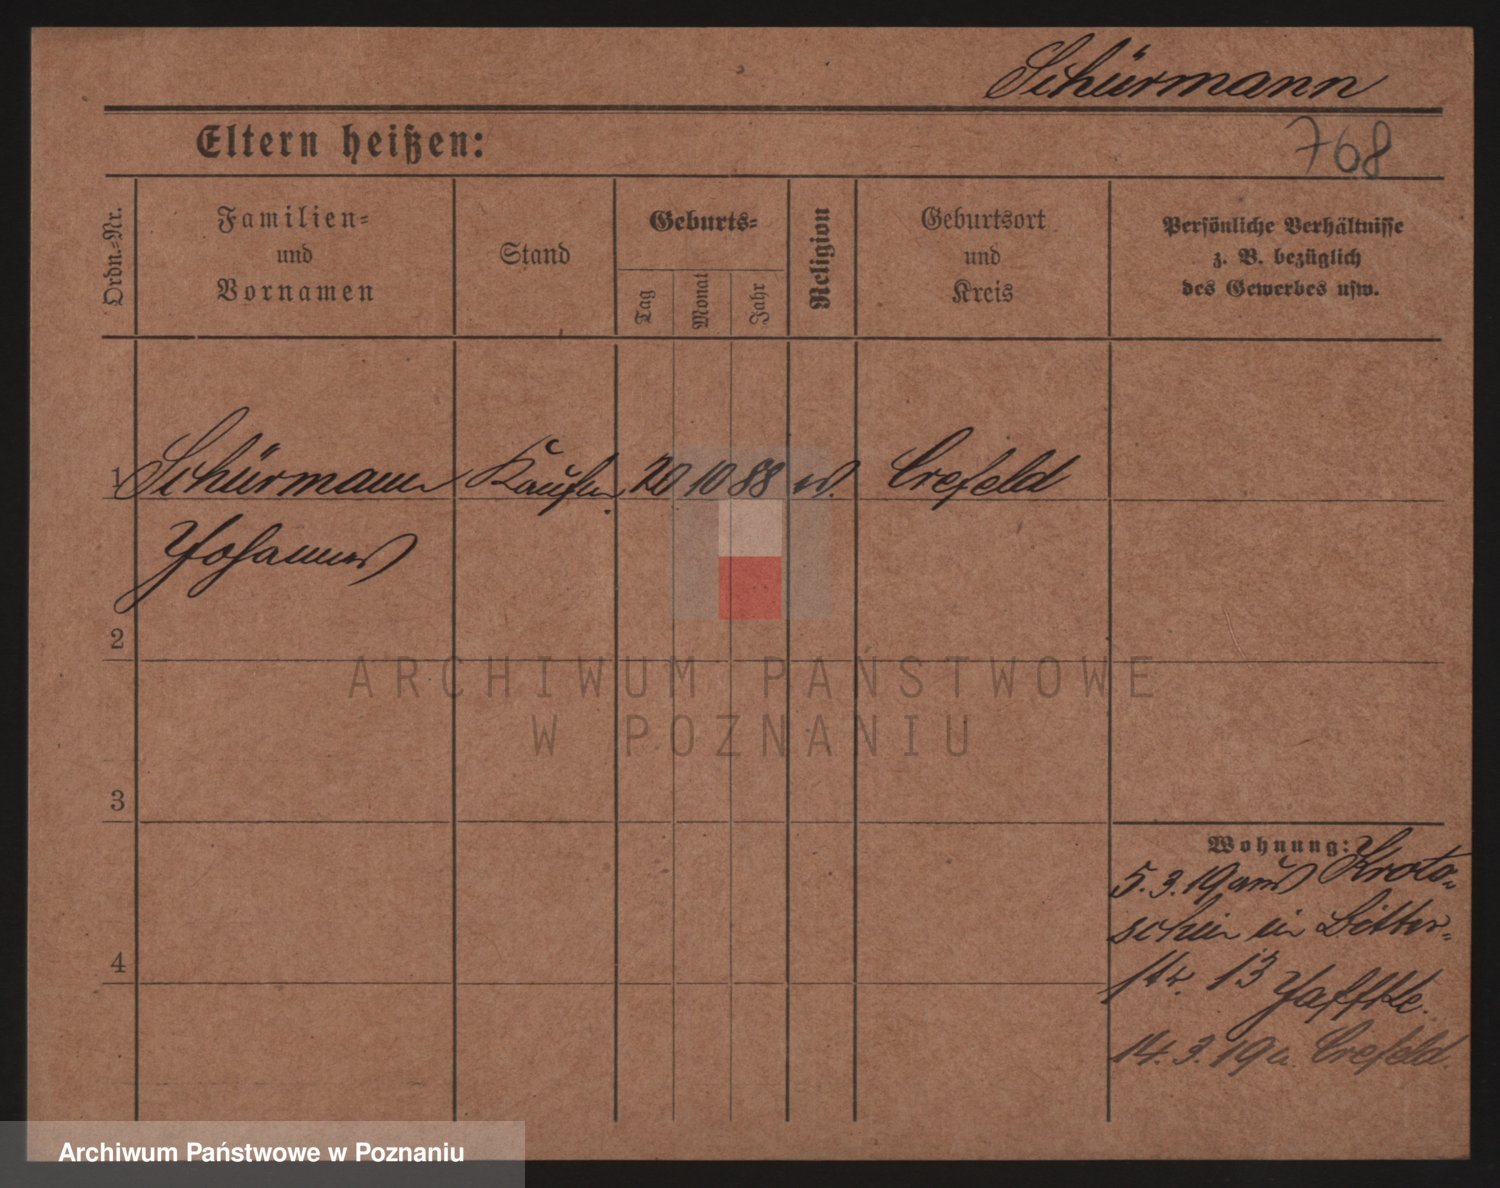 Schürmann
768
Eltern heißen:
Ordn.-Nr.
Familien-
und
Vornamen
Stand
Geburts-
Tag
Monat
Jahr
Religion
Geburtsort
und
Kreis
Persönliche Verhältnisse
z. B. bezüglich
des Gewerbes usw.
1 Schürmann Kaufm. 20 10 88 ev. Crefeld
Johannes
2
ARCHIWUM PAŃSTWOWE
W POZNANIU
3
Wohnung:
5.3.19 aus Kroto-
schin in Bitter-
str. 13
4
14.3.19 n. Crefeld.
Archiwum Państwowe w Poznaniu